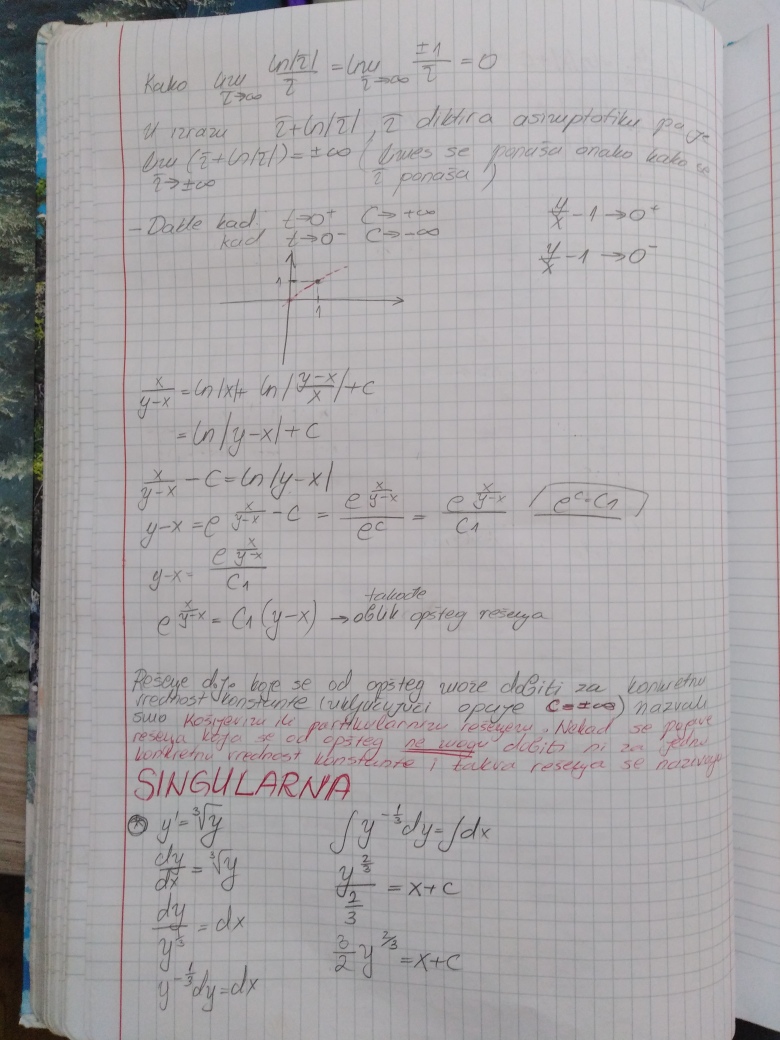 Kako lim_{τ→∞} ln|τ|/τ = lim_{τ→∞} (±1)/τ = 0
U izrazu τ+ln|τ|, τ diktira asimptotiku pa je
lim_{τ→±∞} (τ+ln|τ|) = ±∞ (limes se ponaša onako kako se
τ ponaša)
- Dakle kad t→0⁺ C→+∞
kad t→0⁻ C→-∞
y/x - 1 → 0⁺
y/x - 1 → 0⁻
1
1
x/(y-x) = ln|x| + ln|(y-x)/x| + C
= ln|y-x| + C
x/(y-x) - C = ln|y-x|
y-x = e^{x/(y-x) - C} = e^{x/(y-x)}/e^C = e^{x/(y-x)}/C1 e^C = C1
y-x = e^{x/(y-x)}/C1
takođe
e^{x/(y-x)} = C1(y-x) → oblik opšteg rešenja
Rešenje d.j. koje se od opšteg može dobiti za konkretnu
vrednost konstante (uključujući C=±∞) nazvali
smo Košijevim ili partikularnim rešenjem. Nekad se pojave
rešenja koja se od opšteg ne mogu dobiti ni za jednu
konkretnu vrednost konstante i takva rešenja se nazivaju
SINGULARNA
* y' = ∛y
dy/dx = ∛y
dy/y^{1/3} = dx
y^{-1/3}dy = dx
∫y^{-1/3}dy = ∫dx
y^{2/3}/(2/3) = x+C
3/2 y^{2/3} = x+C